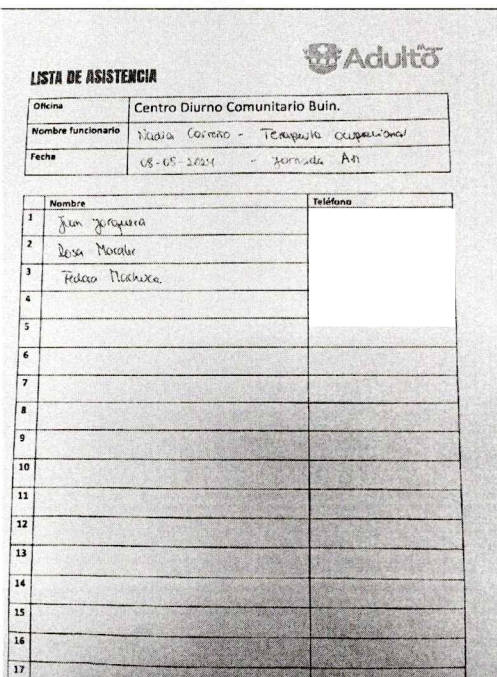 Adulto Mayor
LISTA DE ASISTENCIA
Oficina Centro Diurno Comunitario Buin.
Nombre funcionario Nadia Carreño - Terapeuta ocupacional
Fecha 08-05-2024 - Jornada AM
Nombre Teléfono
1 Juan Jorquera
2 Rosa Morales
3 Machuca
4
5
6
7
8
9
10
11
12
13
14
15
16
17